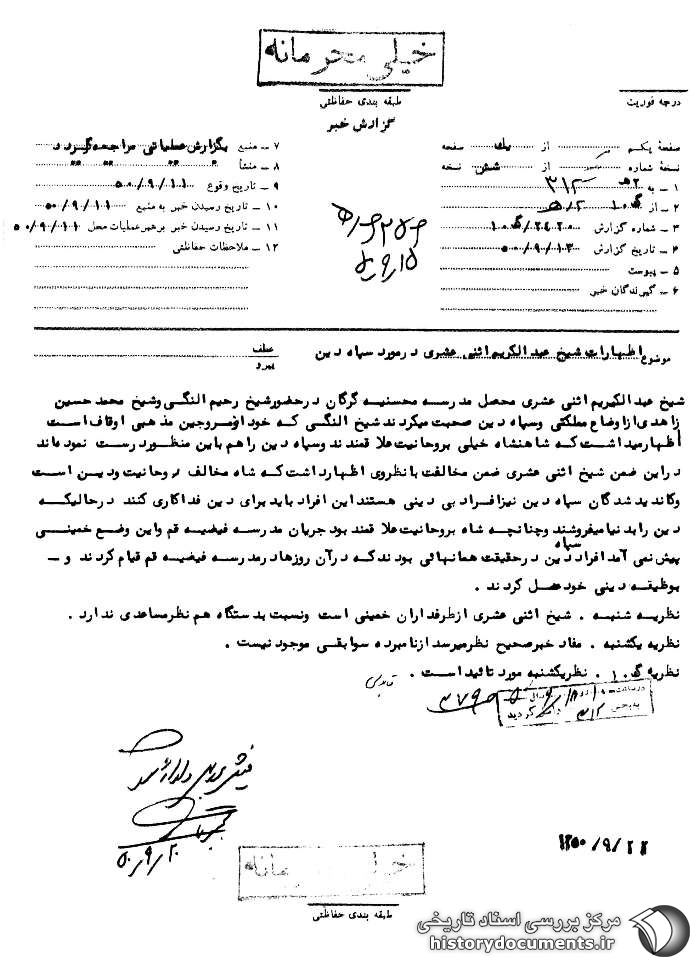 خیلی محرمانه
طبقه بندی حفاظتی
درجه فوریت
گزارش خبر
صفحه یکم از یک صفحه
نسخه شماره از شش نسخه
۱ ــ به ۲هـ ۳۱۲
۲ ــ از گ ۱۰ / ۲هـ
۳ ــ شماره گزارش ۲۴۲۰/گ ۱۰
۴ ــ تاریخ گزارش ۵۰/۹/۱۳
۵ ــ پیوست
۶ ــ گیرندگان خبر
۷ ــ منبع بگزارش عملیاتی مراجعه گردد
۸ ــ منشأ
۹ ــ تاریخ وقوع ۵۰/۹/۱۱
۱۰ ــ تاریخ رسیدن خبر به منبع ۵۰/۹/۱۱
۱۱ ــ تاریخ رسیدن خبر برهبر عملیات محل ۵۰/۹/۱۱
۱۲ ــ ملاحظات حفاظتی
موضوع اظهارات شیخ عبدالکریم اثنی عشری در مورد سپاه دین
عطف
پیرو
شیخ عبدالکیریم اثنی عشری محصل مدرسه محسنیه گرگان در حضور شیخ رحیم النگی و شیخ محمد حسین
زاهدی از اوضاع مملکتی و سپاه دین صحبت میکردند شیخ النگی که خود از مروجین مذهبی اوقاف است
اظهار میداشت که شاهنشاه خیلی بروحانیت علاقمندند و سپاه دین را هم باین منظور درست نموده اند
در این ضمن شیخ اثنی عشری ضمن مخالفت با نظر وی اظهار داشت که شاه مخالف روحانیت و دین است
و کاندید شدگان سپاه دین نیز افراد بی دینی هستند این افراد باید برای دین فداکاری کنند در حالیکه
دین را بدنیا میفروشند و چنانچه شاه بروحانیت علاقمند بود جریان مدرسه فیضیه قم و این وضع خمینی
پیش نمی آمد افراد سپاه دین در حقیقت همانهائی بودند که در آن روزها در مدرسه فیضیه قم قیام کردند و ــ
بوظیفه دینی خود عمل کردند .
نظریه شنبه . شیخ اثنی عشری از طرفداران خمینی است و نسبت بدستگاه هم نظر مساعدی ندارد .
نظریه یکشنبه . مفاد خبر صحیح نظر میرسد از نامبرده سوابقی موجود نیست .
نظریه گ ۱۰ . نظر یکشنبه مورد تائید است .
به بخش ۳۱۲ گردید
۵۰/۹/۲۰
۱۳۵۰/۹/۲۲
خیلی محرمانه
طبقه بندی حفاظتی
مرکز بررسی اسناد تاریخی
historydocuments.ir